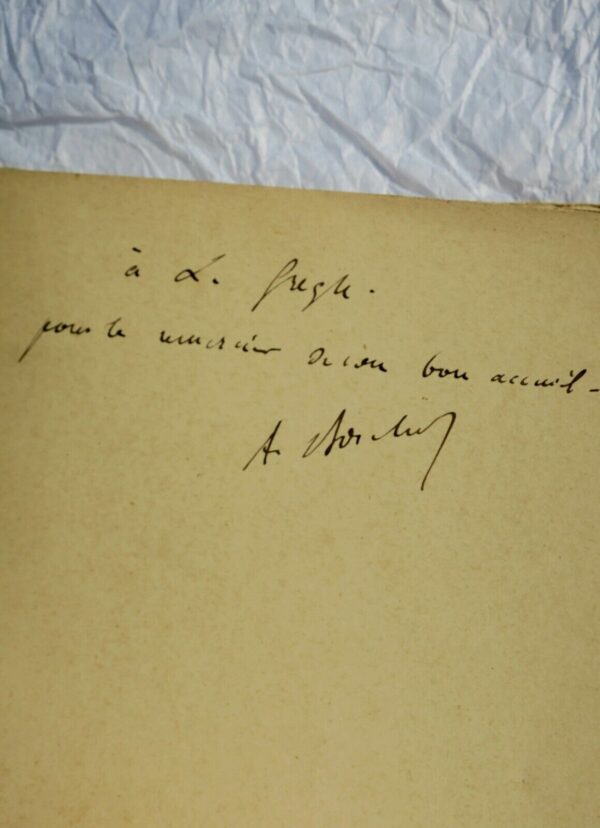 à L. Gregh.
pour le remercier de son bon accueil -
A. Boschot